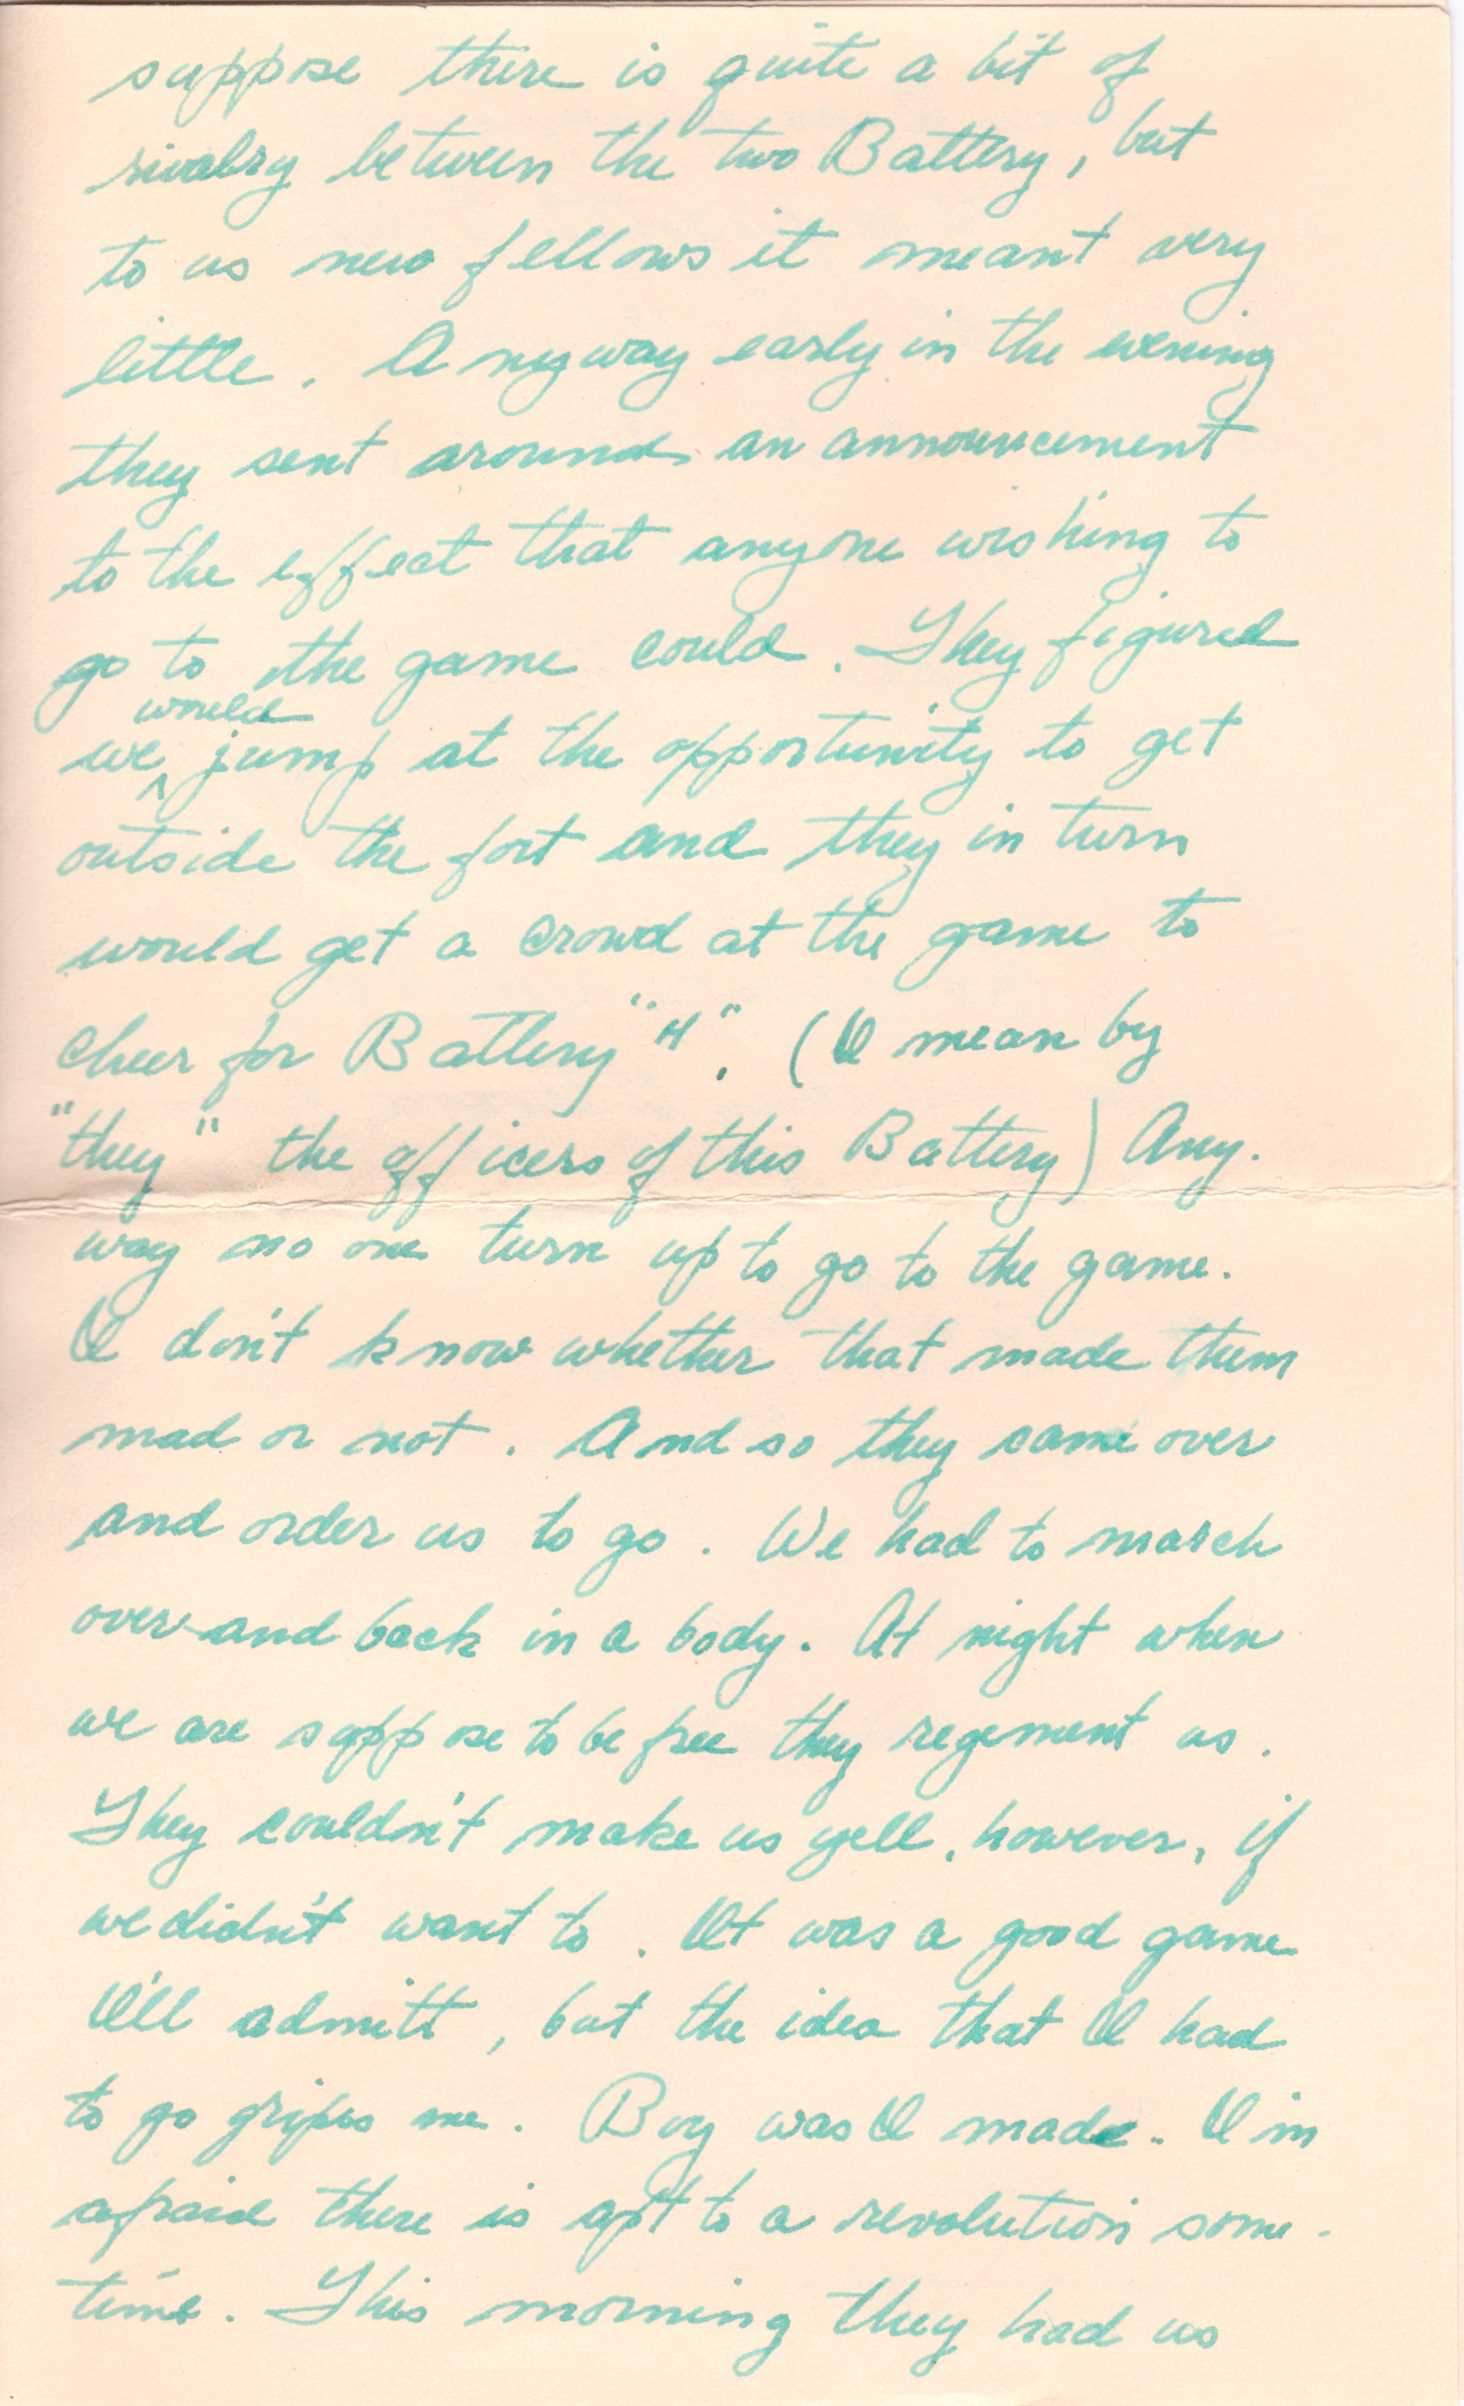 suppose there is quite a bit of
rivalry between the two Battery, but
to us new fellows it meant very
little. Anyway early in the evening
they sent around an announcement
to the effect that anyone wishing to
go to the game could. They figured
we would jump at the opportunity to get
outside the fort and they in turn
would get a crowd at the game to
cheer for Battery "H". (I mean by
"they" the officers of this Battery) Any-
way no one turn up to go to the game.
I don't know whether that made them
mad or not. And so they came over
and order us to go. We had to march
over and back in a body. At night when
we are suppose to be free they regement us.
They couldn't make us yell, however, if
we didn't want to. It was a good game
I'll admitt, but the idea that I had
to go gripes me. Boy was I made. I'm
afraid there is apt to a revolution some-
time. This morning they had us